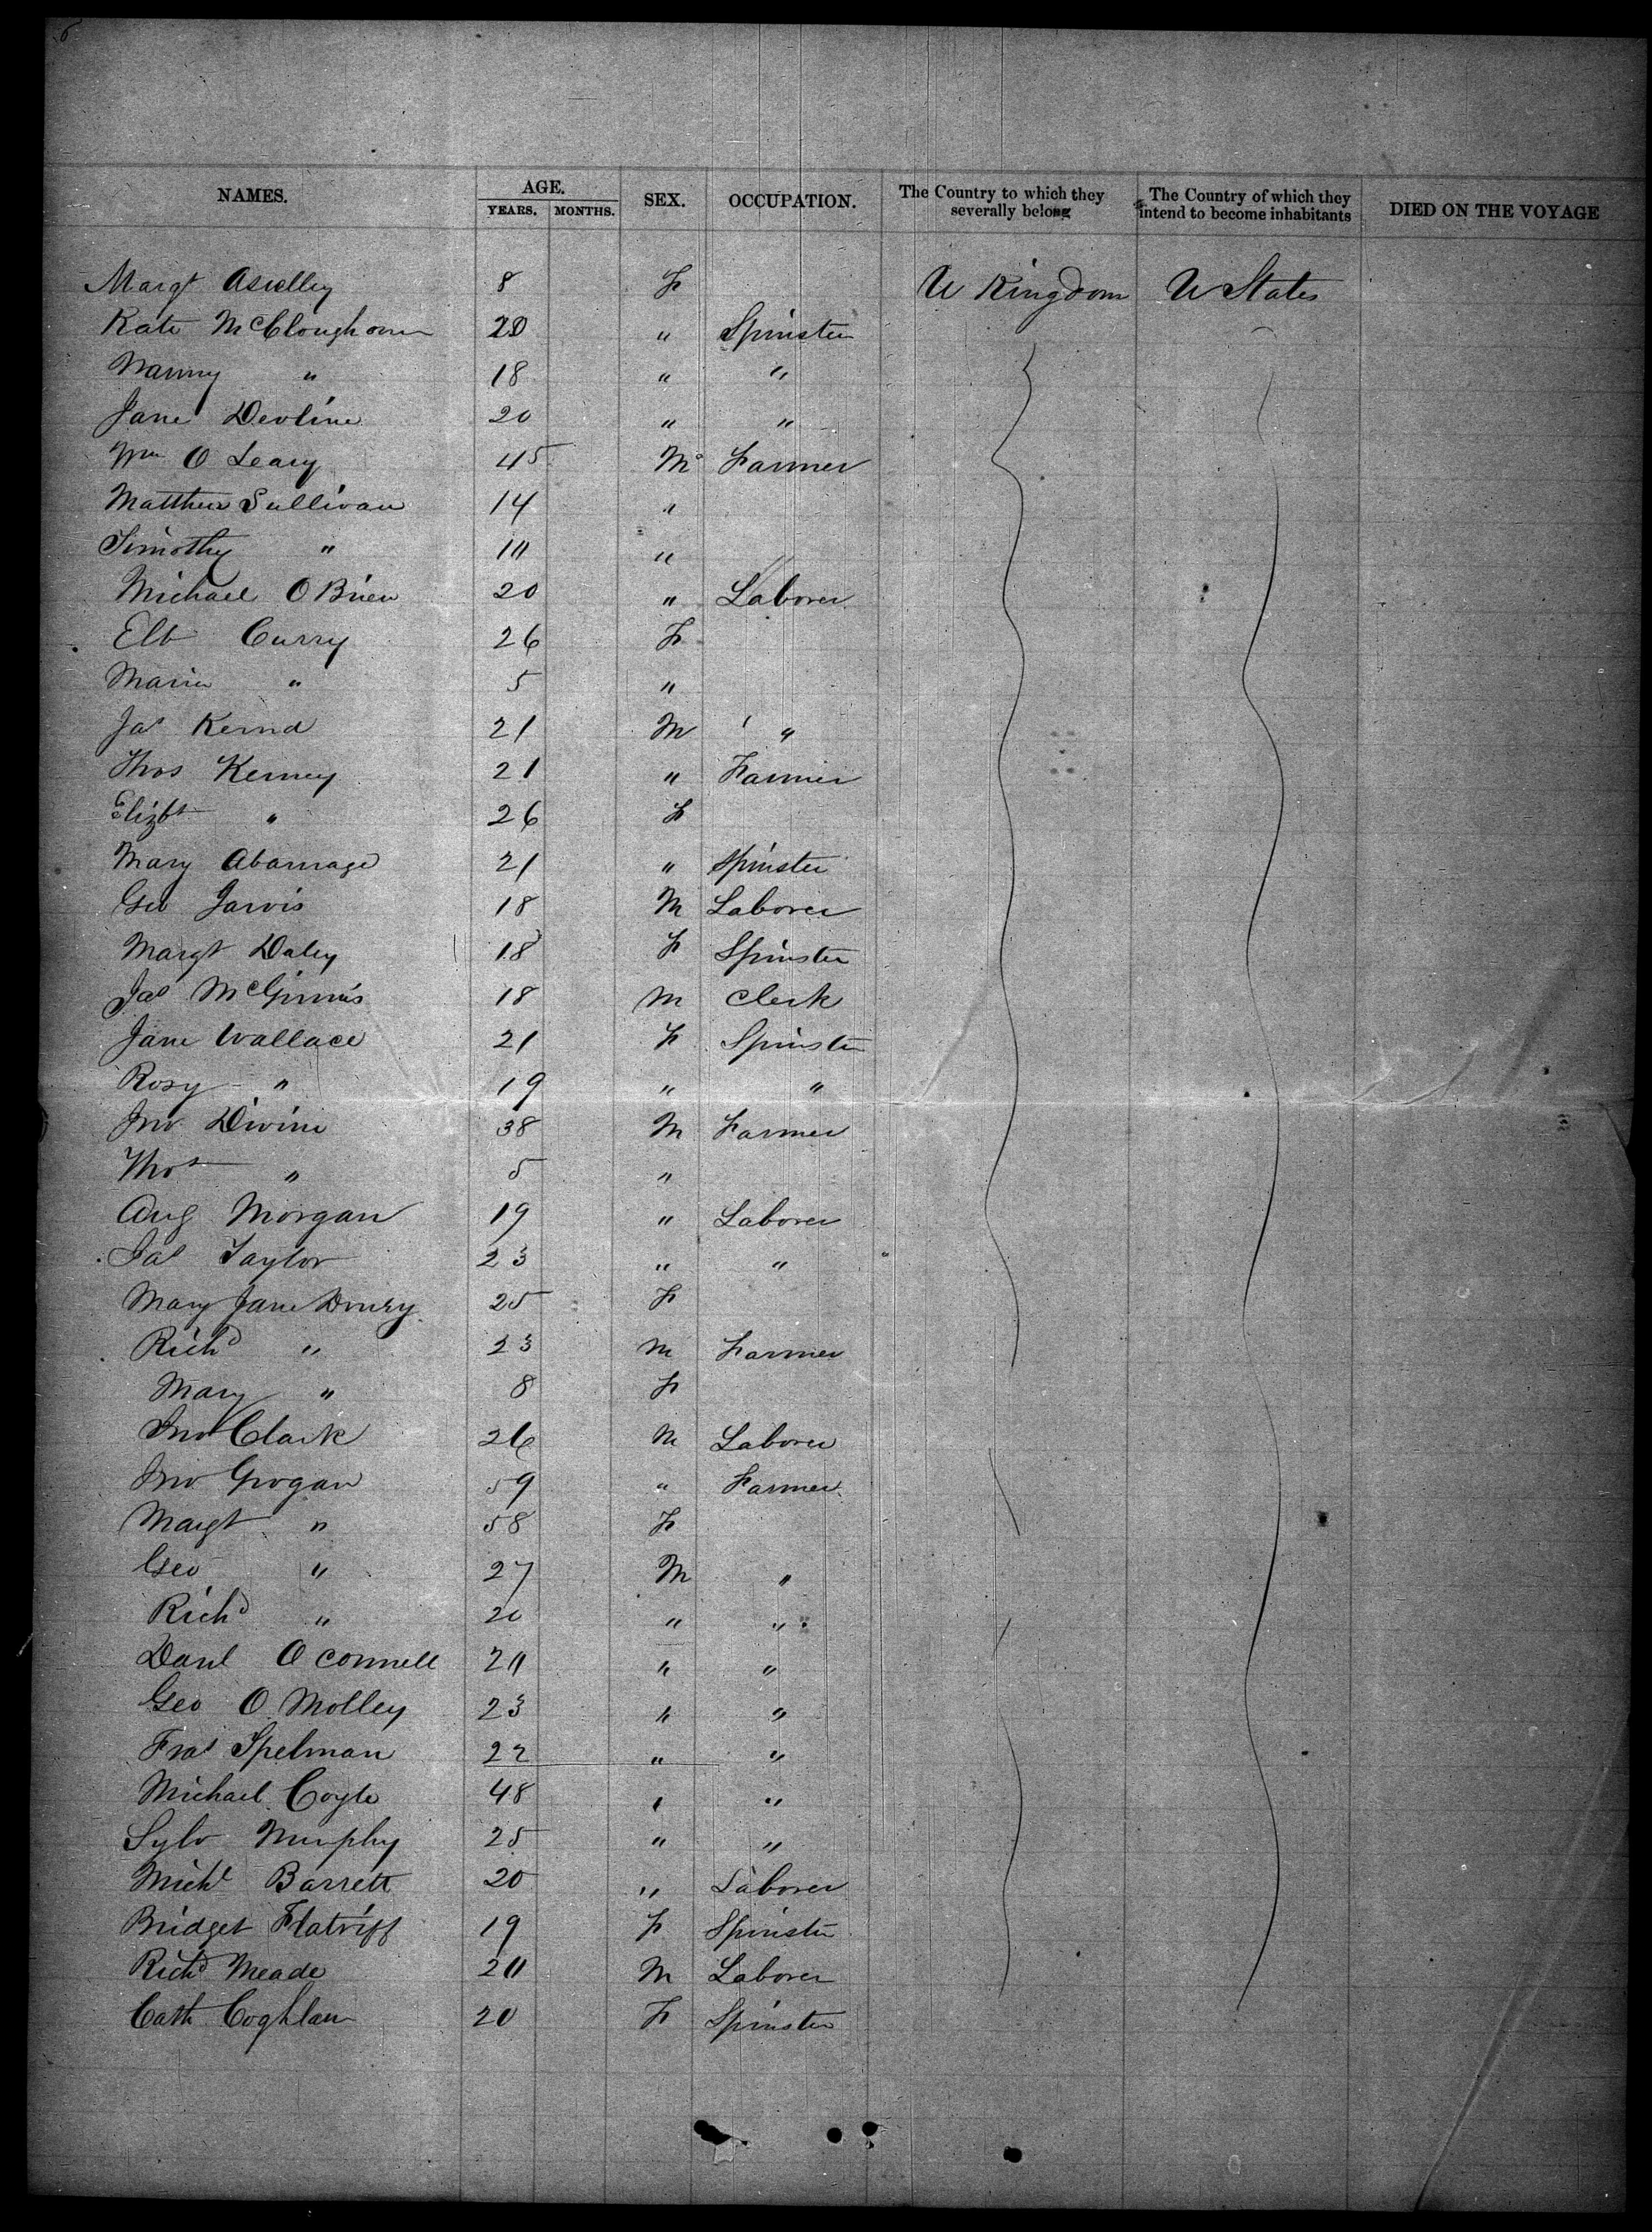 6
NAMES. AGE. SEX. OCCUPATION. The Country to which they severally belong The Country of which they intend to become inhabitants DIED ON THE VOYAGE
YEARS. MONTHS.
Margt 8 F U Kingdom U States
Kate 20 " Spinster
Nanny " 18 " "
Jane Devline 20 " "
Wm O Leary 45 M Farmer
Matthew Sullivan 14 "
Timothy " 11 "
Michael O Brien 20 " Laborer
Elb Curry 26 F
Maria " 5 "
Jas 21 M "
Thos Kenney 21 " Farmer
Elizbt " 26 F
Mary 21 " Spinster
Geo Jarvis 18 M Laborer
Margt Daley 18 F Spinster
Jas McGinnis 18 M Clerk
Jane Wallace 21 F Spinster
Rosy " 19 " "
Jno Divine 38 M Farmer
Thos " 5 "
Aug Morgan 19 " Laborer
Jas Taylor 23 " "
Mary Jane Drury 25 F
Richd " 23 M Farmer
Mary " 8 F
Jno Clark 26 M Laborer
Jno Grogan 59 " Farmer
Margt " 58 F
Geo " 27 M "
Richd " 20 " "
Danl O Connell 20 " "
Geo O Molley 23 " "
Fras Spelman 22 " "
Michael Coyle 48 " "
Sylv Murphy 25 " "
Michl Barrett 20 " Laborer
Bridget 19 F Spinster
Richd Meade 20 M Laborer
Cath Coghlan 20 F Spinster